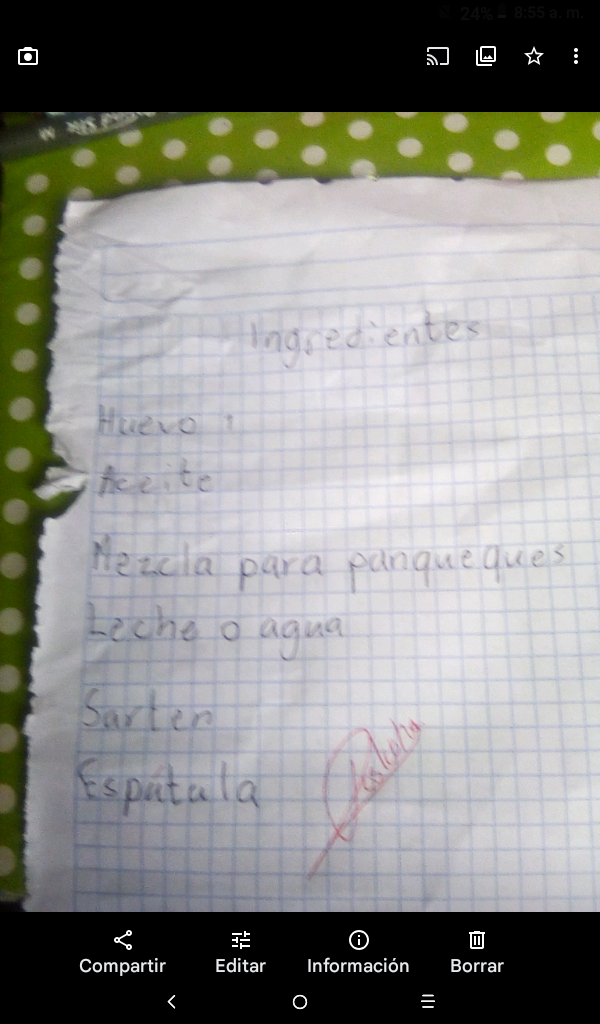 24% 8:55 a. m.
Ingredientes
Huevo 1
Aceite
Mezcla para panqueques
Leche o agua
Sarten
Espátula
Compartir Editar Información Borrar